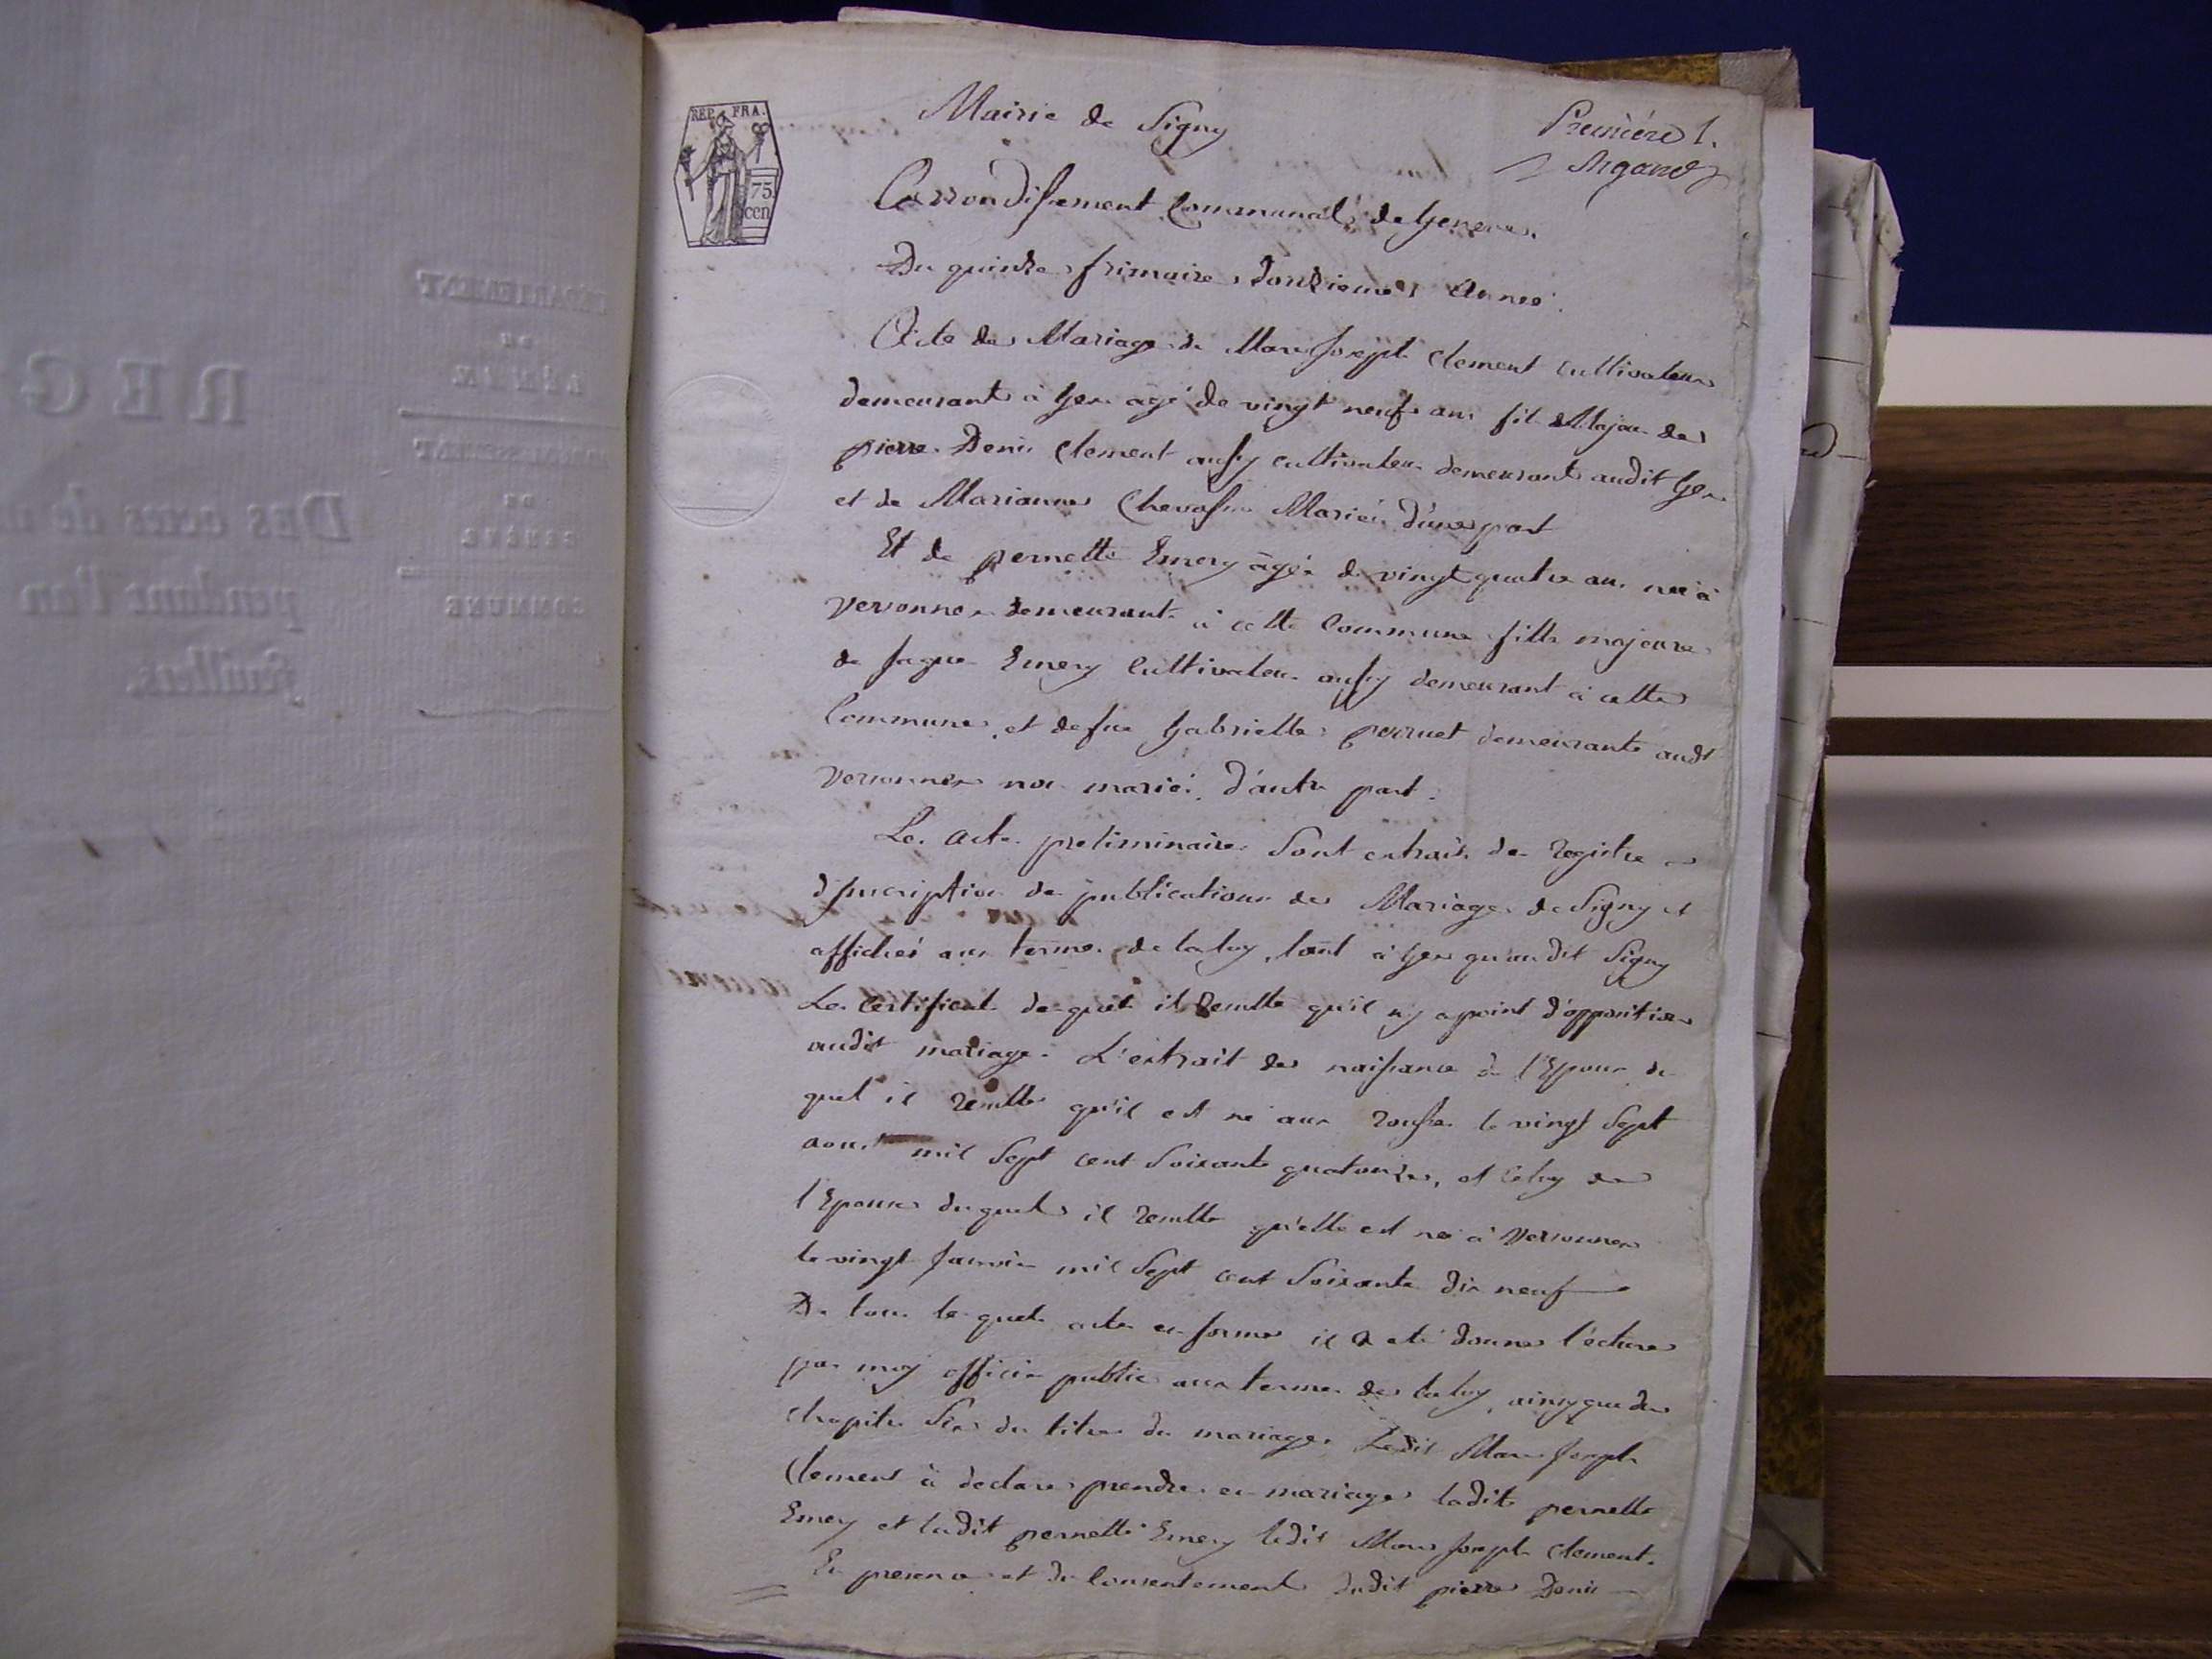 REP. FRA.
75
cen
Mairie de Signy
Première 1.
Arrondissement Communal de Geneve.
Du quinze frimaire douzieme année.
Acte de Mariage de Marc Joseph Clement Cultivateur
demeurant à Gex agé de vingt neuf ans fils Majeur de
pierre Denis Clement aussy cultivateur demeurant audit Gex
et de Marianne Chevassu Mariés d'une part
Et de pernette Emery agée de vingt quatre ans née à
Vesonnex demeurante à cette Commune fille majeure
de Jaques Emery Cultivateur aussy demeurant à cette
Commune, et de fue Gabrielle perruet demeurante audt
Vesonnex non mariés. d'autre part.
Les actes preliminaires Sont extraits des Registres
d'Inscription des publications de Mariages de Signy et
affichés aux termes de la loy, tant à Gex qu'audit Signy
Les Certificats desquels il Resulte qu'il ny a point d'opposition
audit mariage. L'extrait de naissance de l'Epoux du
quel il Resulte qu'il est né aux Rousses le vingt Sept
aoust mil Sept cent Soixante quatorze, et Celuy de
l'Epouse duquel il Resulte qu'elle est née à Vesonnex
le vingt Janvier mil Sept cent Soixante dix neuf
De tous lesquels actes en forme il a eté donné l'écture
par moy officier public aux termes de la loy, ainsy que du
chapitre Six du titre du mariage. Ledit Marc Joseph
Clement à declaré prendre en mariage ladite pernette
Emery et ladit pernette Emery ledit Marc Joseph Clement.
En presence et du Consentement dudit pierre Denis